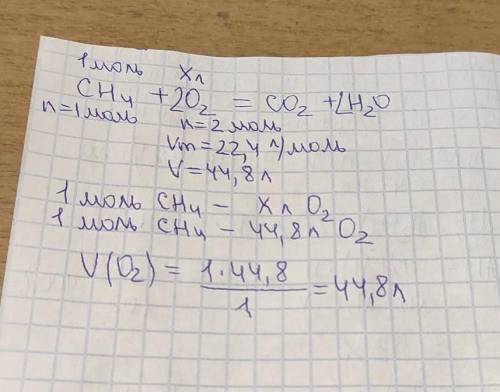 1 моль Xл
CH4 + 2O2 = CO2 + 2H2O
n=1 моль n=2 моль
Vm=22,4 л/моль
V=44,8 л
1 моль CH4 – Xл O2
1 моль CH4 – 44,8 л O2
V(O2) = 1·44,8 / 1 = 44,8 л